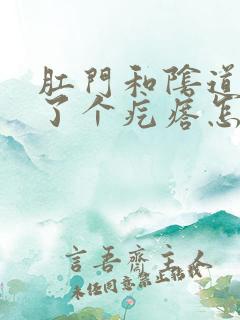 肛門和陰道
了个疙瘩怎
言吾齋主人
未经同意禁止转载